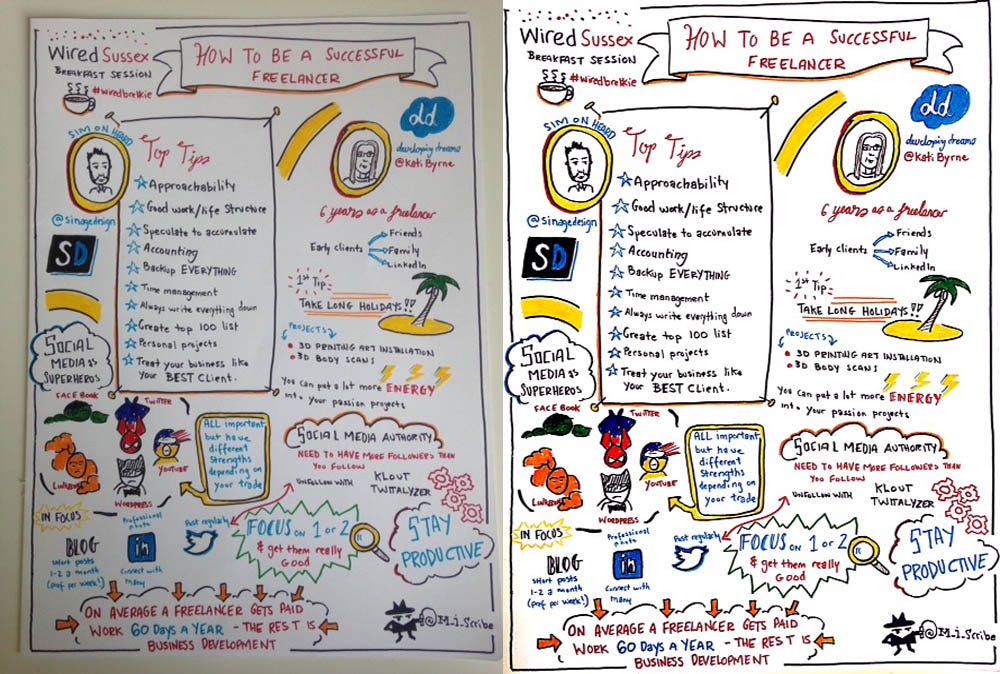 Wired Sussex
BREAKFAST SESSION
#wiredbrekkie
HOW TO BE A SUCCESSFUL
FREELANCER
SIMON HEARD
@sinagedesign
SD
Top Tips
Approachability
Good work/life Structure
Speculate to accumulate
Accounting
Backup EVERYTHING
Time management
Always write everything down
Create top 100 list
Personal projects
Treat your business like
your BEST client.
dd
developing dreams
@Kati Byrne
6 years as a freelancer
Early clients
Friends
Family
LinkedIn
1st Tip
TAKE LONG HOLIDAYS!!
PROJECTS
3D PRINTING ART INSTALLATION
3D BODY SCANS
You can put a lot more ENERGY
into your passion projects
SOCIAL
MEDIA as
SUPERHEROS
FACEBOOK
TWITTER
LINKEDIN
YOUTUBE
WORDPRESS
ALL important
but have
different
strengths
depending on
your trade
SOCIAL MEDIA AUTHORITY
NEED TO HAVE MORE FOLLOWERS THAN
YOU FOLLOW
UNFOLLOW WITH
KLOUT
TWITALYZER
IN FOCUS
BLOG
short posts
1-2 a month
(pref per week!)
Professional
photo
in
Connect with
many
Post regularly
FOCUS on 1 or 2
& get them really
GOOD
STAY
PRODUCTIVE
ON AVERAGE A FREELANCER GETS PAID
WORK 60 DAYS A YEAR - THE REST IS
BUSINESS DEVELOPMENT
@M.i.Scribe
Wired Sussex
BREAKFAST SESSION
#wiredbrekkie
HOW TO BE A SUCCESSFUL
FREELANCER
SIMON HEARD
@sinagedesign
SD
Top Tips
Approachability
Good work/life Structure
Speculate to accumulate
Accounting
Backup EVERYTHING
Time management
Always write everything down
Create top 100 list
Personal projects
Treat your business like
your BEST client.
dd
developing dreams
@Kati Byrne
6 years as a freelancer
Early clients
Friends
Family
LinkedIn
1st Tip
TAKE LONG HOLIDAYS!!
PROJECTS
3D PRINTING ART INSTALLATION
3D BODY SCANS
You can put a lot more ENERGY
into your passion projects
SOCIAL
MEDIA as
SUPERHEROS
FACEBOOK
TWITTER
LINKEDIN
YOUTUBE
WORDPRESS
ALL important
but have
different
strengths
depending on
your trade
SOCIAL MEDIA AUTHORITY
NEED TO HAVE MORE FOLLOWERS THAN
YOU FOLLOW
UNFOLLOW WITH
KLOUT
TWITALYZER
IN FOCUS
BLOG
short posts
1-2 a month
(pref per week!)
Professional
photo
in
Connect with
many
Post regularly
FOCUS on 1 or 2
& get them really
GOOD
STAY
PRODUCTIVE
ON AVERAGE A FREELANCER GETS PAID
WORK 60 DAYS A YEAR - THE REST IS
BUSINESS DEVELOPMENT
@M.i.Scribe